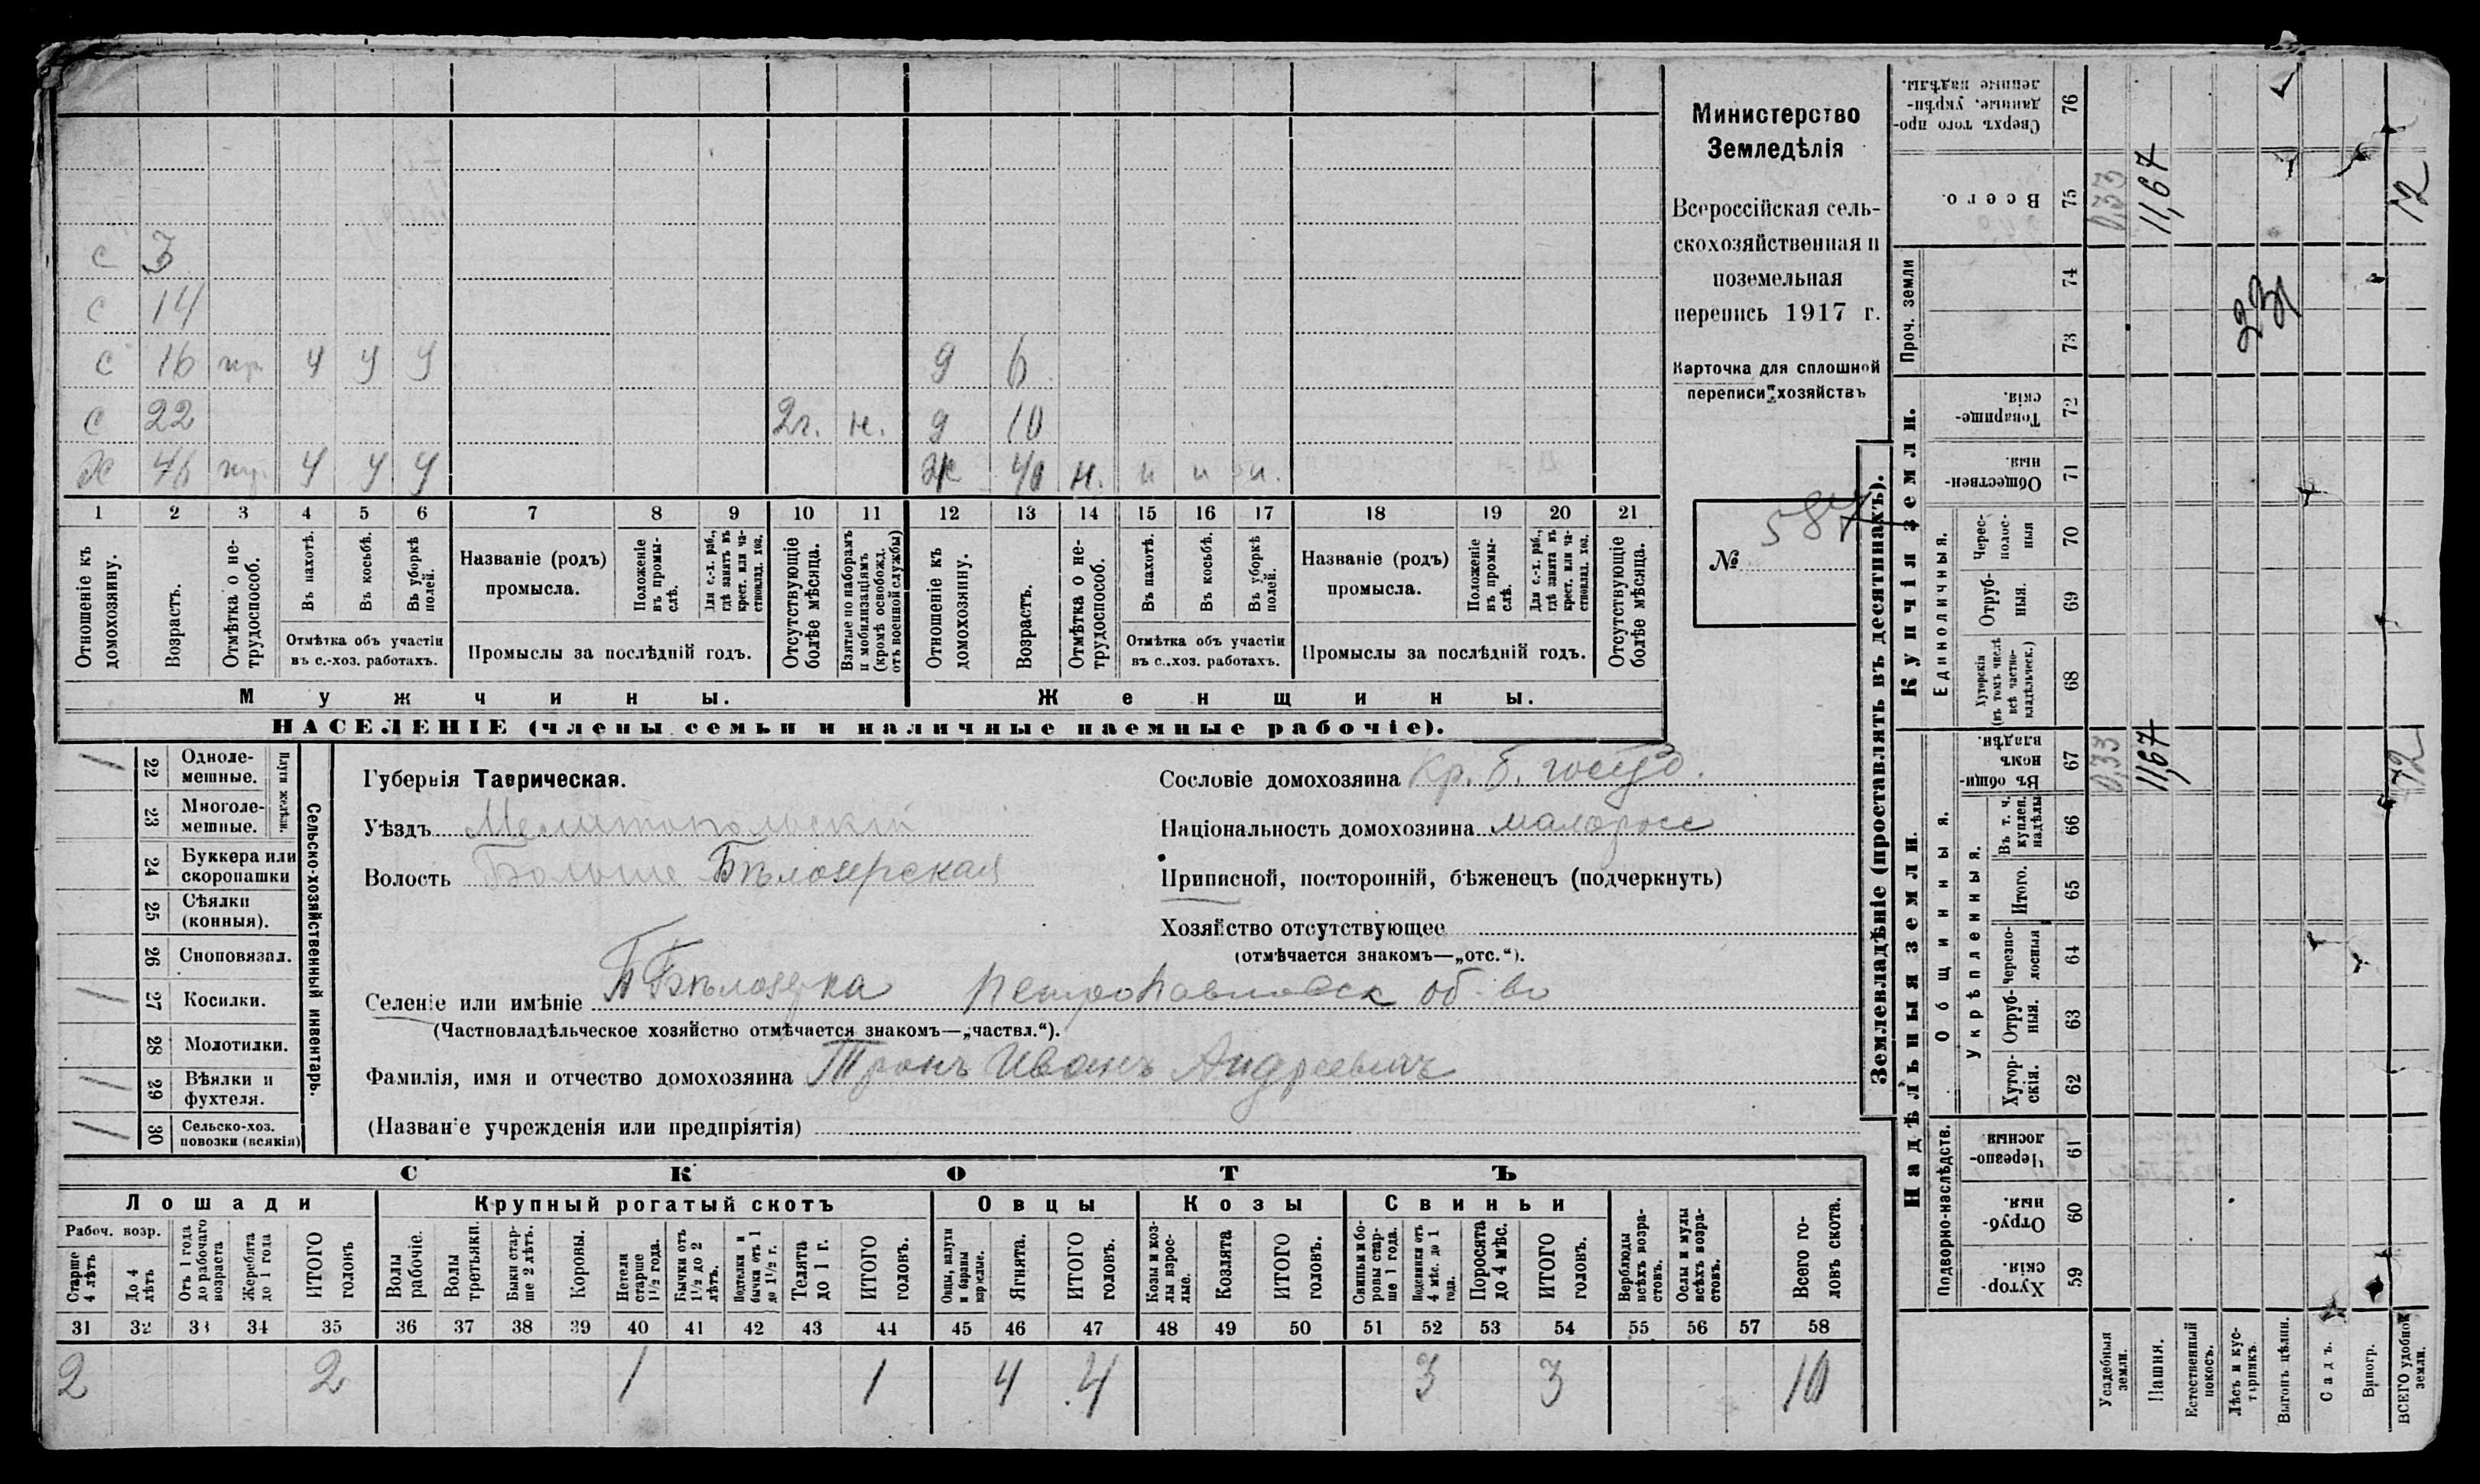 с 3
с 14
с 16 тр. ч ч ч д 6
с 22 2г. н. д 10
Х 46 ч ч ч ж 40 н. н н н.
1 2 3 4 5 6 7 8 9 10 11 12 13 14 15 16 17 18 19 20 21
Отношеніе къ домохозяину.
Возрастъ.
Отмѣтка о не-трудоспособ.
Въ пахотѣ.
Въ косьбѣ.
Въ уборкѣ полей.
Отмѣтка объ участіи
въ с.-хоз. работахъ.
Названіе (родъ)
промысла.
Положеніе въ промы-слѣ.
Для с.-х. раб., гдѣ занятъ въ крест. или ча-стновлад. хоз.
Промыслы за послѣдній годъ.
Отсутствующіе болѣе мѣсяца.
Взятые по наборамъ и мобилизаціямъ (кромѣ освобожд. отъ военной службы)
Отношеніе къ домохозяину.
Возрастъ.
Отмѣтка о не-трудоспособ.
Въ пахотѣ.
Въ косьбѣ.
Въ уборкѣ полей.
Отмѣтка объ участіи
въ с..хоз. работахъ.
Названіе (родъ)
промысла.
Положеніе въ промы-слѣ.
Для с.-х. раб., гдѣ занята въ крест. или ча-стновлад. хоз.
Промыслы за послѣдній годъ.
Отсутствующіе болѣе мѣсяца.
Мужчины. Женщины.
НАСЕЛЕНІЕ (члены семьи и наличные наемные рабочіе).
Министерство
Земледѣлія
Всероссійская сель-
скохозяйственная и
поземельная
перепись 1917 г.
Карточка для сплошной
переписи хозяйствъ
№ 587
/ 22 Одноле-мешные.
23 Многоле-мешные.
Плуги желѣзн.
24 Буккера или скоропашки
25 Сѣялки (конныя).
26 Сноповязал.
/ 27 Косилки.
28 Молотилки.
/ 29 Вѣялки и фухтеля.
/ 30 Сельско-хоз. повозки (всякія)
Сельско-хозяйственный инвентарь.
Губернія Таврическая.
Уѣздъ Мелитопольскій
Волость Больше Бѣлозерская
Селеніе или имѣніе Б Бѣлозерка Петропавловск об-во
(Частновладѣльческое хозяйство отмѣчается знакомъ—„частвл.“).
Фамилія, имя и отчество домохозяина Тронъ Иванъ Андреевичъ
(Названіе учрежденія или предпріятія)
Сословіе домохозяина Кр. б. госуд.
Національность домохозяина малоросс
Приписной, посторонній, бѣженецъ (подчеркнуть)
Хозяйство отсутствующее
(отмѣчается знакомъ—„отс.“).
СКОТЪ
Лошади Крупный рогатый скотъ Овцы Козы Свиньи
Рабоч. возр.
Старше 4 лѣтъ
До 4 лѣтъ
Отъ 1 года до рабочаго возраста
Жеребята до 1 года
ИТОГО головъ
Волы рабочіе.
Волы третьяки.
Быки стар-ше 2 лѣтъ.
Коровы.
Нетели старше 1½ года.
Бычки отъ 1½ до 2 лѣтъ.
Подтелки и бычки отъ 1 до 1½ г.
Телята до 1 г.
ИТОГО головъ.
Овцы, валухи и бараны взрослые.
Ягнята.
ИТОГО головъ.
Козы и коз-лы взрос-лые.
Козлята
ИТОГО головъ.
Свиньи и бо-ровы стар-ше 1 года.
Подсвинки отъ 4 мѣс. до 1 года.
Поросята до 4 мѣс.
ИТОГО головъ.
Верблюды всѣхъ возра-стовъ.
Ослы и мулы всѣхъ возра-стовъ.
Всего го-ловъ скота.
31 32 33 34 35 36 37 38 39 40 41 42 43 44 45 46 47 48 49 50 51 52 53 54 55 56 57 58
2 2 1 1 4 4 3 3 10
Землевладѣніе (проставлять въ десятинахъ).
Купчія земли.
Надѣльныя земли.
Сверхъ того про-данные, укрѣп-ленные надѣлы. 76
Всего. 75 0,33 11,67 12
Проч. земли 74 73
23
Товарище-скія. 72
Обществен-ныя. 71
Единоличныя.
Черес-полос-ныя 70
Отруб-ныя. 69
Хуторскія (въ томъ числѣ всѣ частно-владѣльческ.) 68
Общинныя.
Въ общи-номъ владѣн. 67 0,33 11,67 12
Укрѣпленныя.
Въ т. ч. куплен. надѣлы 66
Итого. 65
Черезпо-лосныя 64
Отруб-ныя. 63
Хутор-скія. 62
Подворно-наслѣдств.
Черезпо-лосныя 61
Отруб-ныя. 60
Хутор-скія. 59
Усадебныя земли.
Пашня.
Естественный покосъ.
Лѣсъ и кус-тарникъ.
Выгонъ цѣлин.
Садъ.
Виногр.
ВСЕГО удобной земли.